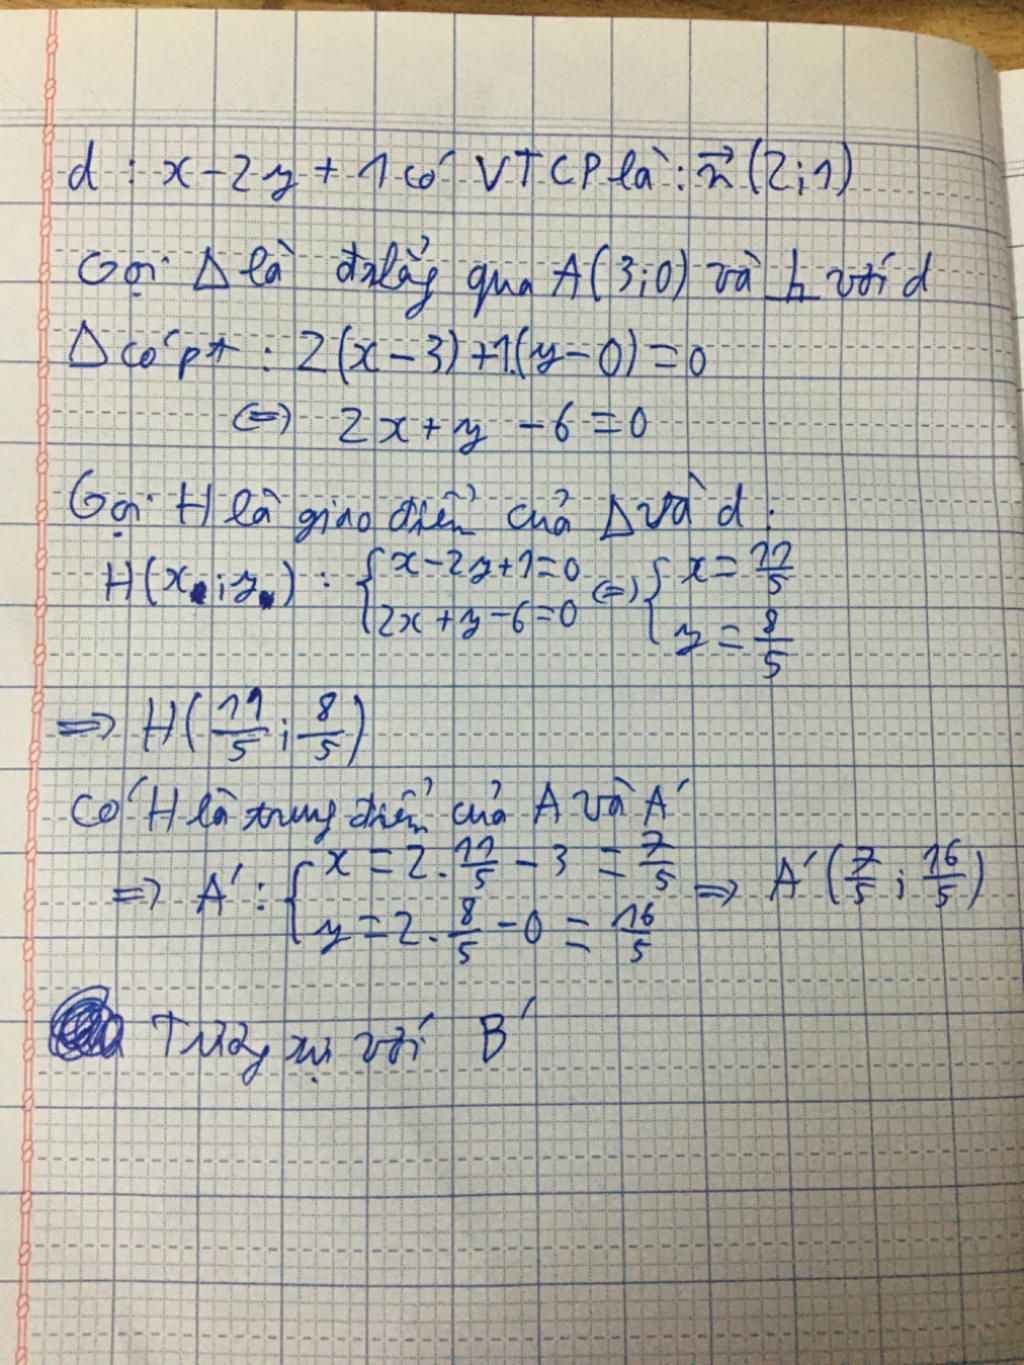 d : x - 2y + 1 có VTCP là : n⃗ (2;1)
Gọi Δ là đt qua A(3;0) và ⊥ với d
Δ có pt : 2(x-3)+1.(y-0)=0
⇔ 2x + y - 6 = 0
Gọi H là giao điểm của Δ và d :
H(x;y) : { x-2y+1=0 ; 2x+y-6=0 ⇔ { x = 11/5 ; y = 8/5
⇒ H(11/5 ; 8/5)
Có H là trung điểm của A và A'
⇒ A' : { x = 2.11/5 - 3 = 7/5 ; y = 2.8/5 - 0 = 16/5 ⇒ A'(7/5 ; 16/5)
Tương tự với B'